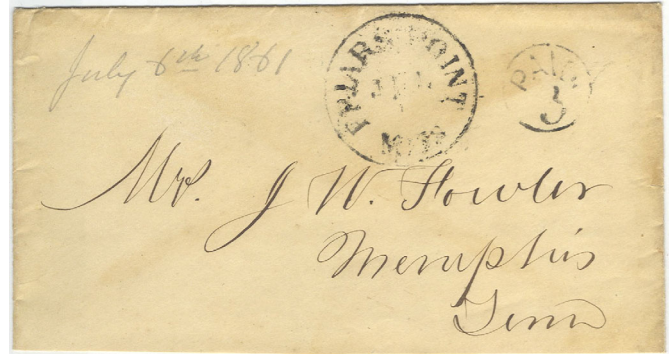 July 6th 1861
FRIARS POINT
JUL
MISS
PAID
3
Mr. J W. Fowler
Memphis
Tenn